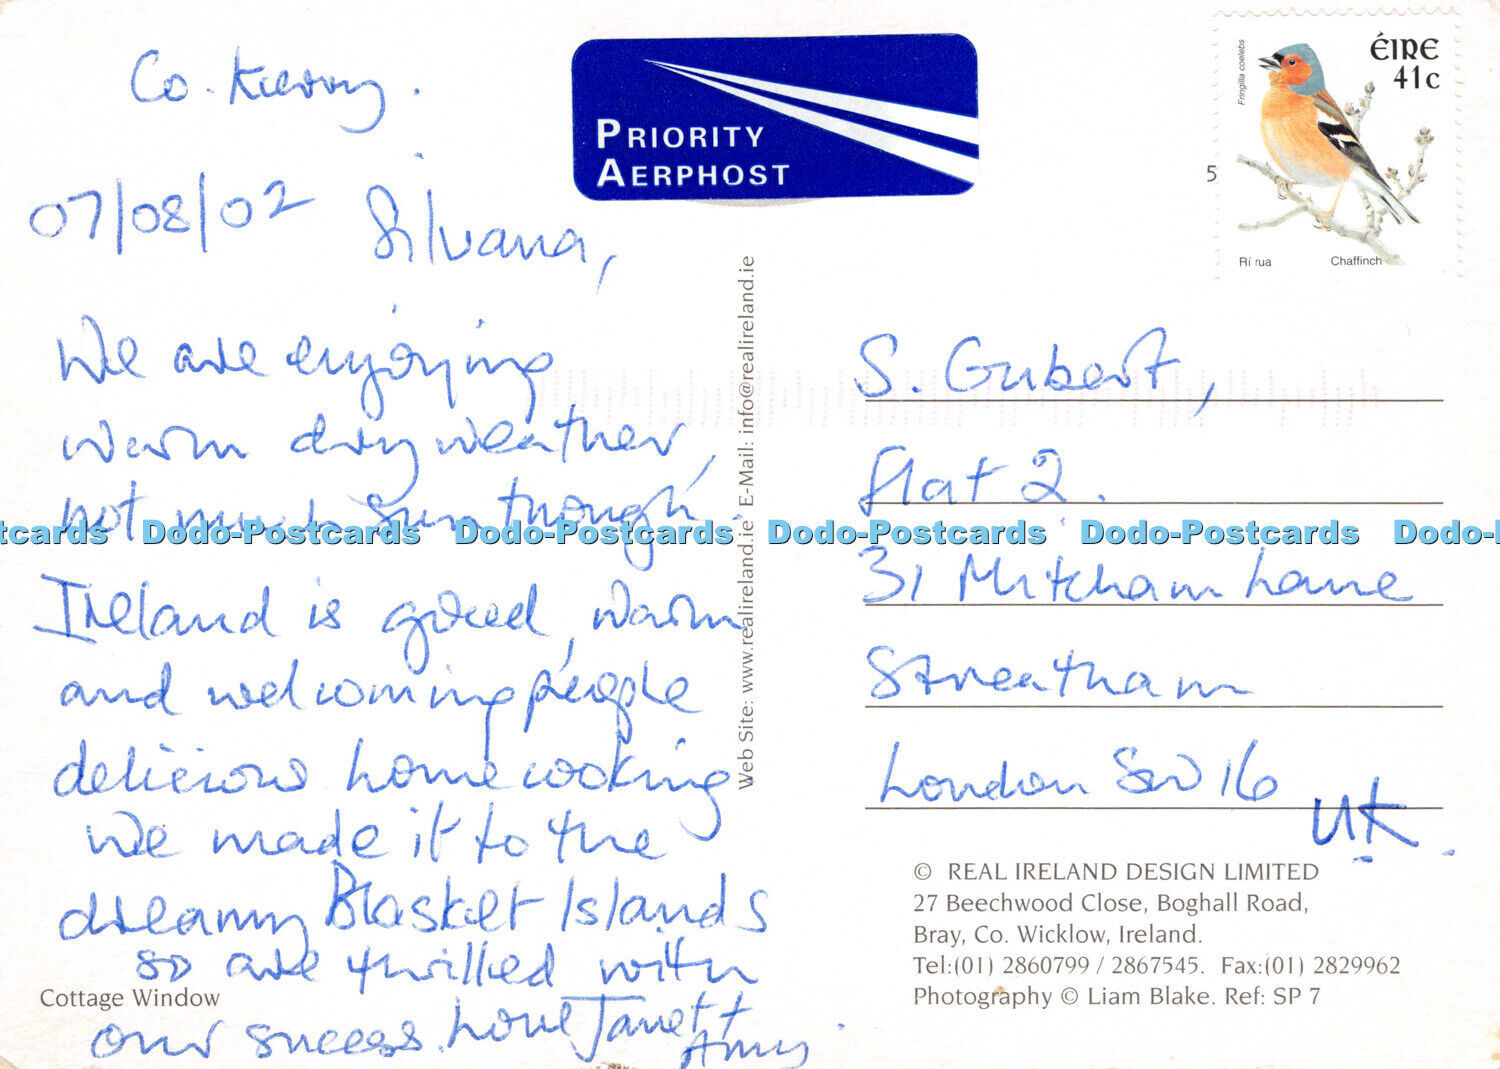 Co. Kerry.
07/08/02
Silvana,
We are enjoying
warm dry weather,
not much sun though.
Ireland is good, warm
and welcoming people
delicious home cooking
We made it to the
dreamy Blasket Islands
so are thrilled with
our success. Love Janet +
Amy
Cottage Window
PRIORITY
AERPHOST
Web Site: www.realireland.ie E-Mail: info@realireland.ie
Fringilla coelebs
ÉIRE
41c
5
Rí rua Chaffinch
S. Gubert,
flat 2.
31 Mitcham Lane
Streatham
London SW16
UK.
© REAL IRELAND DESIGN LIMITED
27 Beechwood Close, Boghall Road,
Bray, Co. Wicklow, Ireland.
Tel:(01) 2860799 / 2867545. Fax:(01) 2829962
Photography © Liam Blake. Ref: SP 7
tcards Dodo-Postcards Dodo-Postcards Dodo-Postcards Dodo-Postcards Dodo-